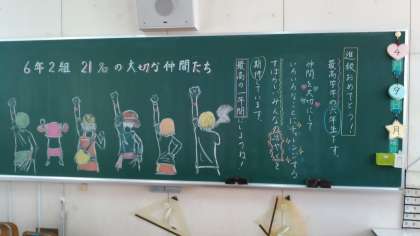 6年2組 21名の大切な仲間たち
進級おめでとう!
最高学年の六年生です。
仲間を大切にして
いろいろなことにチャレンジする
すばらしいみんなのかがやきを
期待しています。
最高の一年間にしようね!
4
9
月